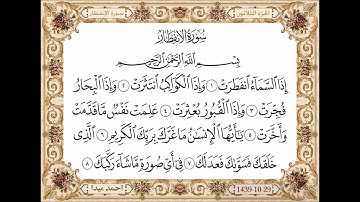 الجزء الثلاثون
سورة الانفطار
سُورَةُ الِانفِطَارِ
بِسْمِ اللَّهِ الرَّحْمَٰنِ الرَّحِيمِ
إِذَا السَّمَاءُ انفَطَرَتْ ١ وَإِذَا الْكَوَاكِبُ انتَثَرَتْ ٢ وَإِذَا الْبِحَارُ
فُجِّرَتْ ٣ وَإِذَا الْقُبُورُ بُعْثِرَتْ ٤ عَلِمَتْ نَفْسٌ مَّا قَدَّمَتْ
وَأَخَّرَتْ ٥ يَا أَيُّهَا الْإِنسَانُ مَا غَرَّكَ بِرَبِّكَ الْكَرِيمِ ٦ الَّذِي
خَلَقَكَ فَسَوَّاكَ فَعَدَلَكَ ٧ فِي أَيِّ صُورَةٍ مَّا شَاءَ رَكَّبَكَ ٨
1439-10-29